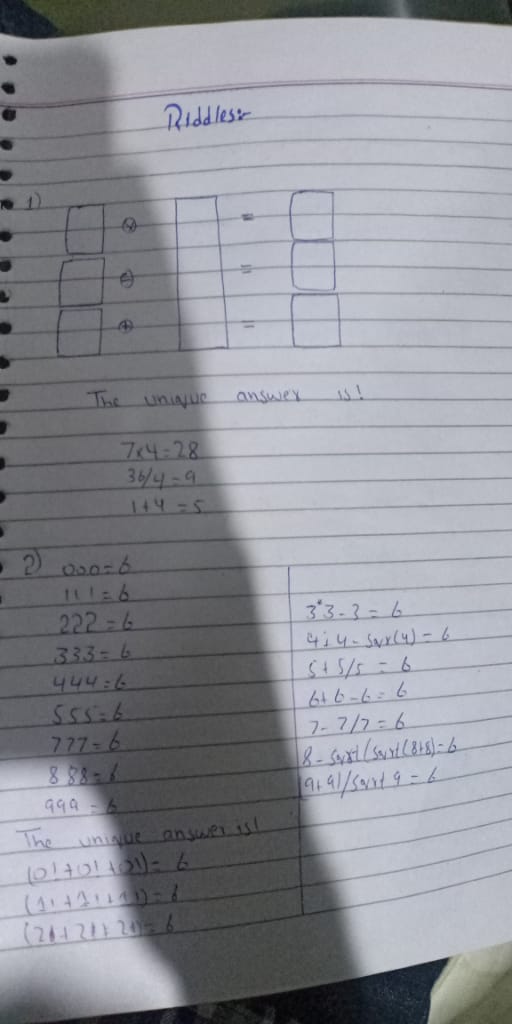 Riddles:-
1)
⊗ =
⊖ =
⊕ =
The unique answer is!
7x4=28
36/4=9
1+4=5
2) 000=6
111=6
222=6
333=6
444=6
555=6
777=6
888=6
999=6
The unique answer is!
(0!+0!+0!)=6
(1!+1!+1!)=6
(2!+2!+2!)=6
3*3-3=6
4+4-sqrt(4)=6
5+5/5=6
6+6-6=6
7-7/7=6
8-sqrt(sqrt(8+8)=6
(9+9)/sqrt9=6